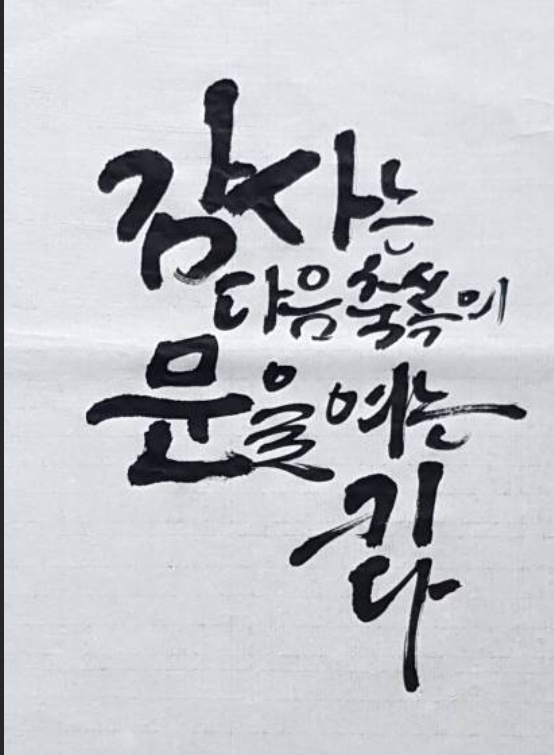 감사는
다음 축복의
문을 여는
키
다